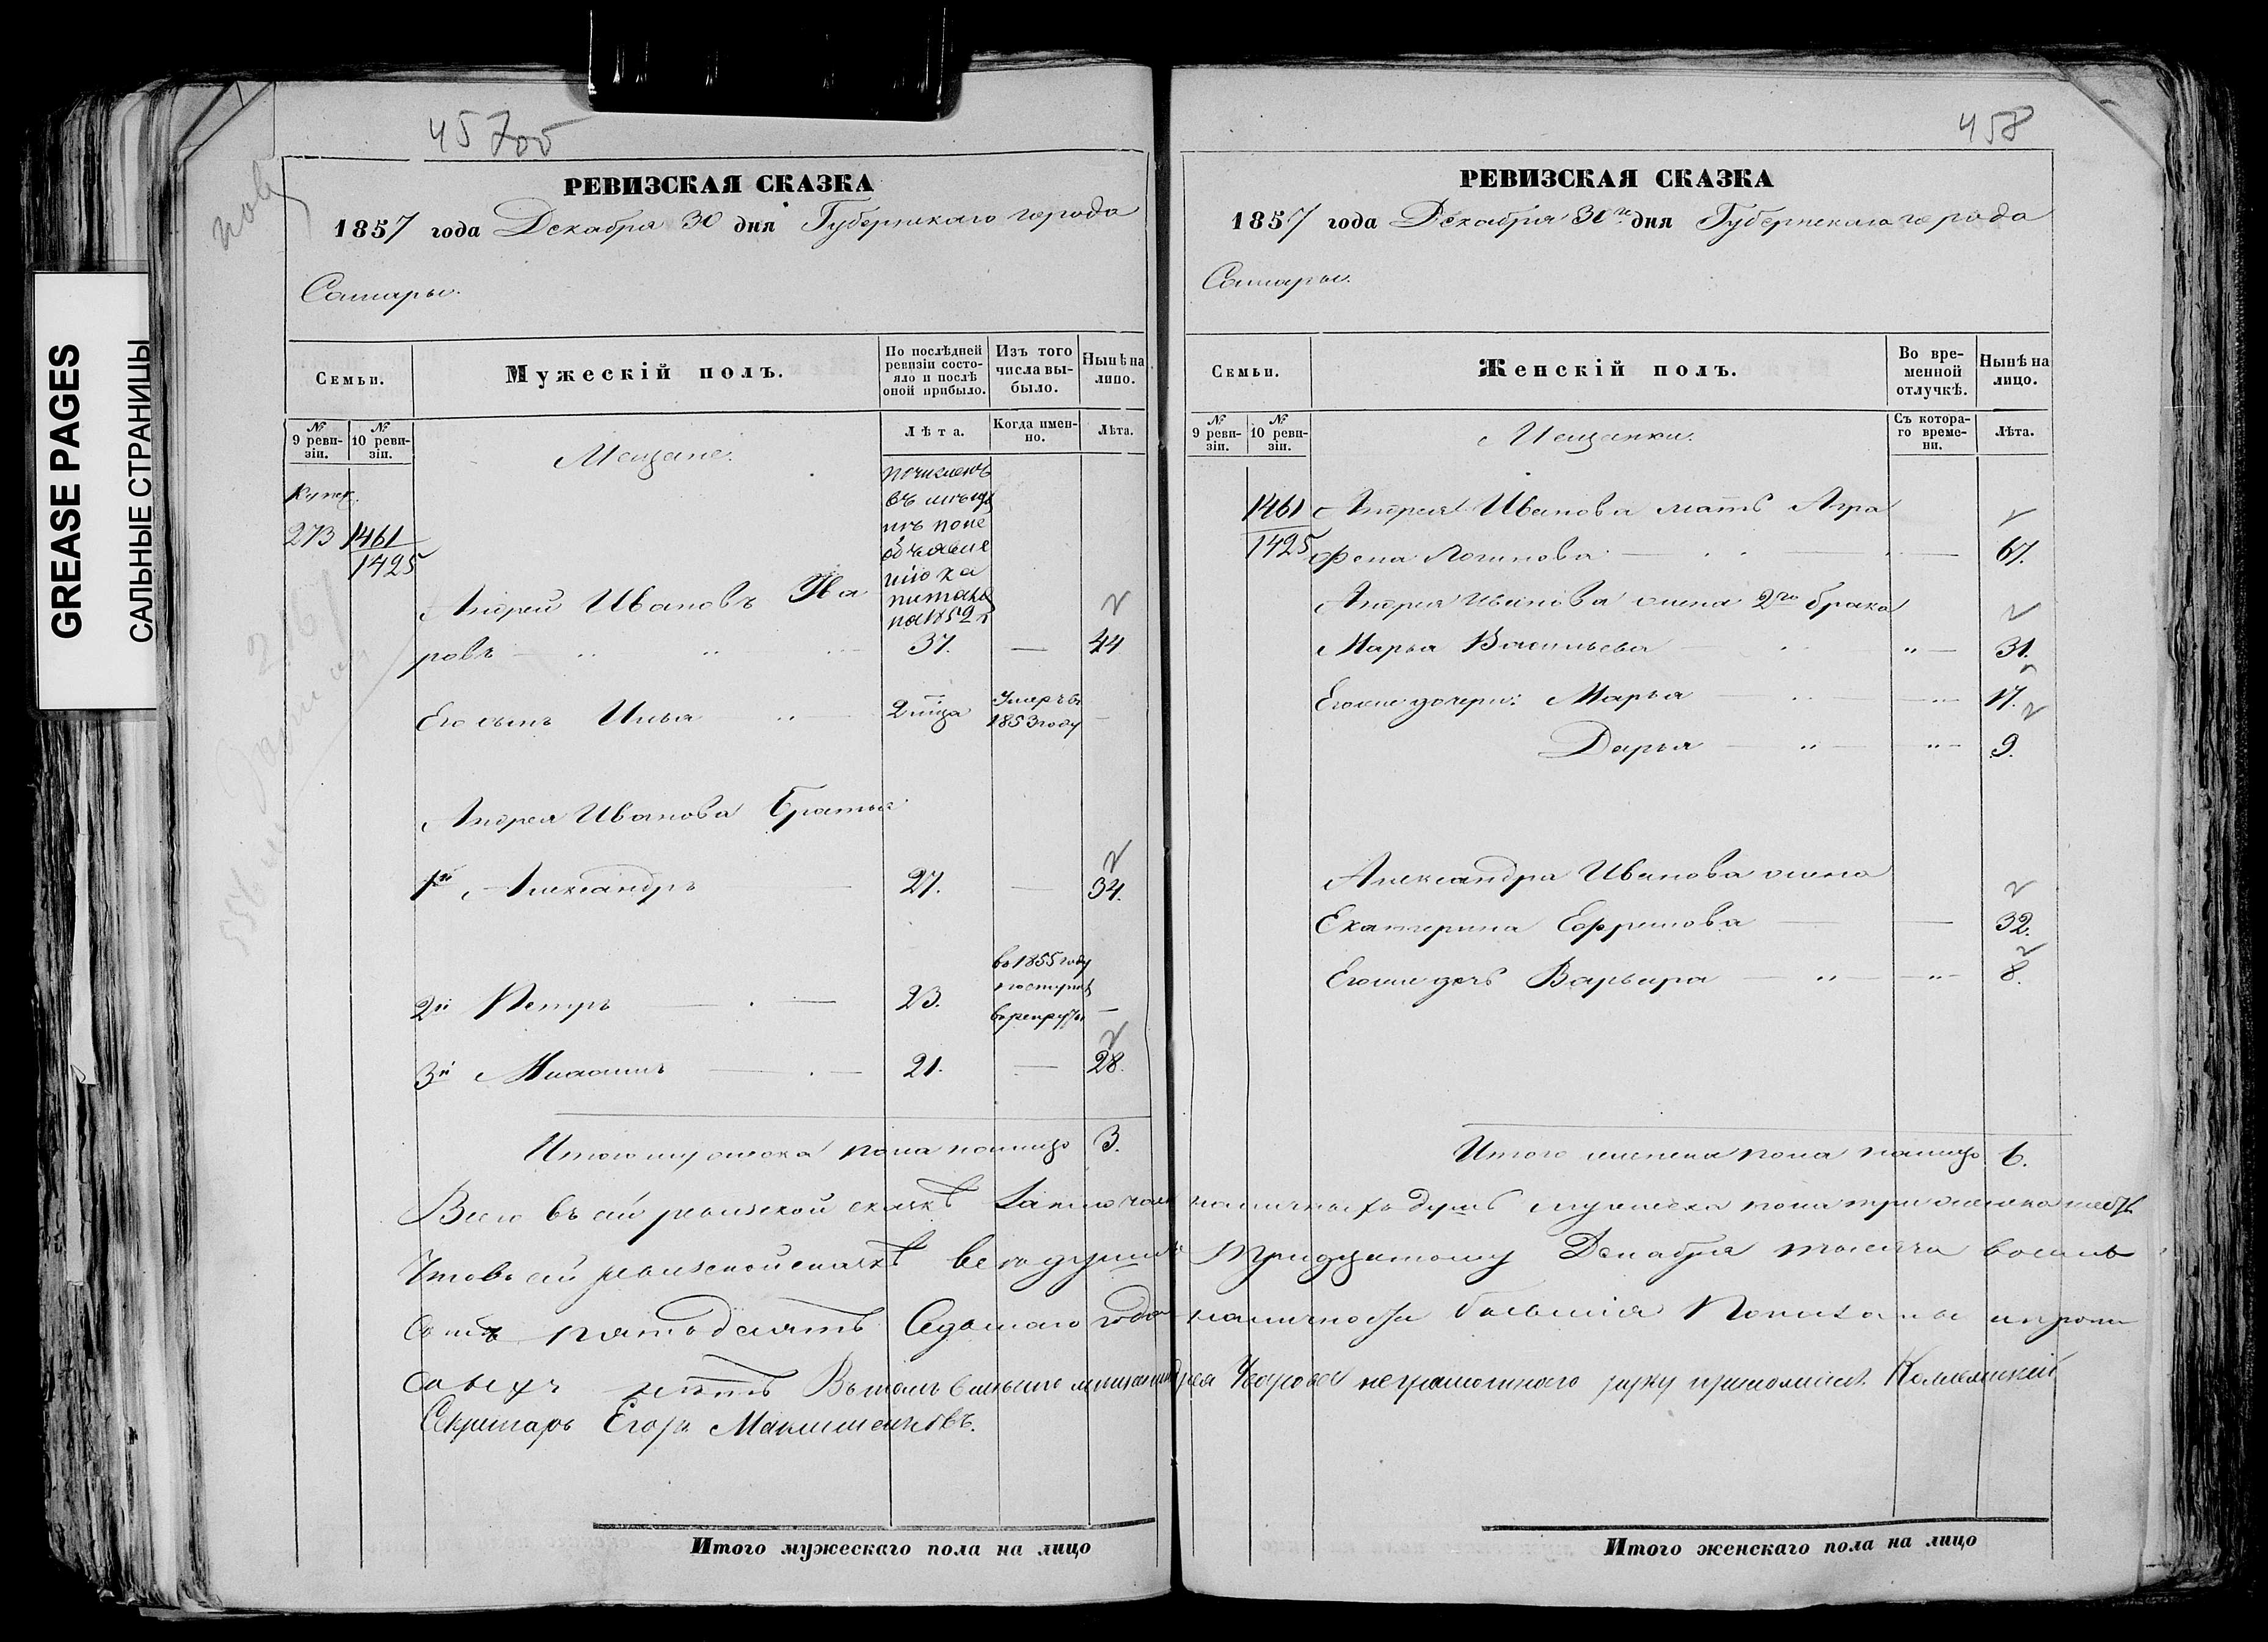 GREASE PAGES
САЛЬНЫЕ СТРАНИЦЫ
457об
РЕВИЗСКАЯ СКАЗКА
1857 года Декабря 30 дня Губернскаго города
Самары.
Семьи.
Мужескій полъ.
По послѣдней ревизіи состояло и послѣ оной прибыло.
Изъ того числа выбыло.
Нынѣ на лицо.
№ 9 ревизіи.
№ 10 ревизіи.
Мещане.
Лѣта.
Когда именно.
Лѣта.
купе.
273 1461
1425
на 1852 г
Андрей Ивановъ Ува
ровъ 37. — 44
Его сынъ Илья Умеръ въ 1853 году
Андрея Иванова братья
1й Александръ 27. — 34.
2й Петръ 23. во 1855 году поступ. в рекруты —
3й Максимъ 21. — 28.
Итого мужеска пола налицо 3.
458
РЕВИЗСКАЯ СКАЗКА
1857 года Декабря 30го дня Губернскаго города
Самары.
Семьи.
Женскій полъ.
Во временной отлучкѣ.
Нынѣ на лицо.
№ 9 ревизіи.
№ 10 ревизіи.
Мещанки.
Съ котораго времени.
Лѣта.
1461 Андрея Иванова мать Агра
1425 фена Логинова — 67.
Андрея Иванова жена 2го брака
Марья Васильева " 31.
Его же дочери: Марья " 17.
Дарья " " 9.
Александра Иванова жена
Екатерина Ефремова — 32.
Его же дочь Варвара " " 8.
Итого женска пола налицо 6.
Всего въ сей ревизской сказкѣ заключает наличныхъ душъ мужеска пола три женска шесть
Что въ сей ревизской сказкѣ все души к тридцатому Декабря тысяча восемь
сотъ пятьдесятъ седьмаго года наличности бывшія показаны и пропи
саныхъ нѣтъ Въ томъ Уварова неграмотнаго руку приложилъ Коллежскій
Секретарь Егоръ
Итого мужескаго пола на лицо
Итого женскаго пола на лицо